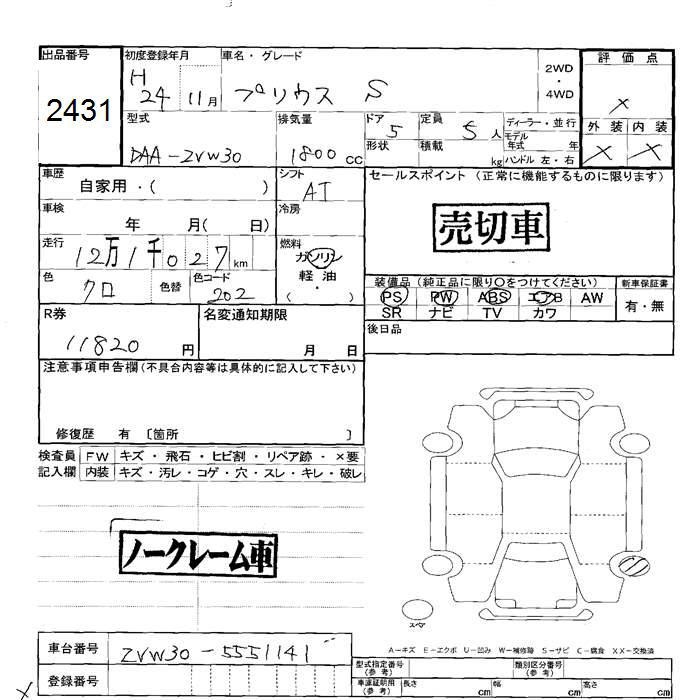 出品番号
2431
初度登録年月
H 24 11月
車名・グレード
プリウス S
2WD
・
4WD
評価点
×
外装 内装
× ×
型式
DAA-ZVW30
排気量
1800 cc
ドア 5
形状
定員 5 人
積載 kg
ディーラー・並行
モデル
年式 年
ハンドル 左・右
車歴
自家用・( )
シフト
AT
セールスポイント (正常に機能するものに限ります)
売切車
車検
年 月( 日)
冷房
走行
12万1千027km
燃料
ガソリン
軽油
( ・ )
色
クロ
色替
色コード
202
装備品 (純正品に限り○をつけてください)
PS PW ABS エアB AW
SR ナビ TV カワ
新車保証書
有・無
R券
11820 円
名変通知期限
月 日
後日品
注意事項申告欄(不具合内容等は具体的に記入して下さい)
修復歴 有 〔箇所 〕
検査員 FW キズ・飛石・ヒビ割・リペア跡・×要
記入欄 内装 キズ・汚レ・コゲ・穴・スレ・キレ・破レ
ノークレーム車
スペア
A－キズ E－エクボ U－凹み W－補修跡 S－サビ C－腐食 XX－交換済
車台番号
ZVW30-5551141
登録番号
型式指定番号
(参考)
類別区分番号
(参考)
車庫証明用
(参考)
長さ cm 幅 cm 高さ cm